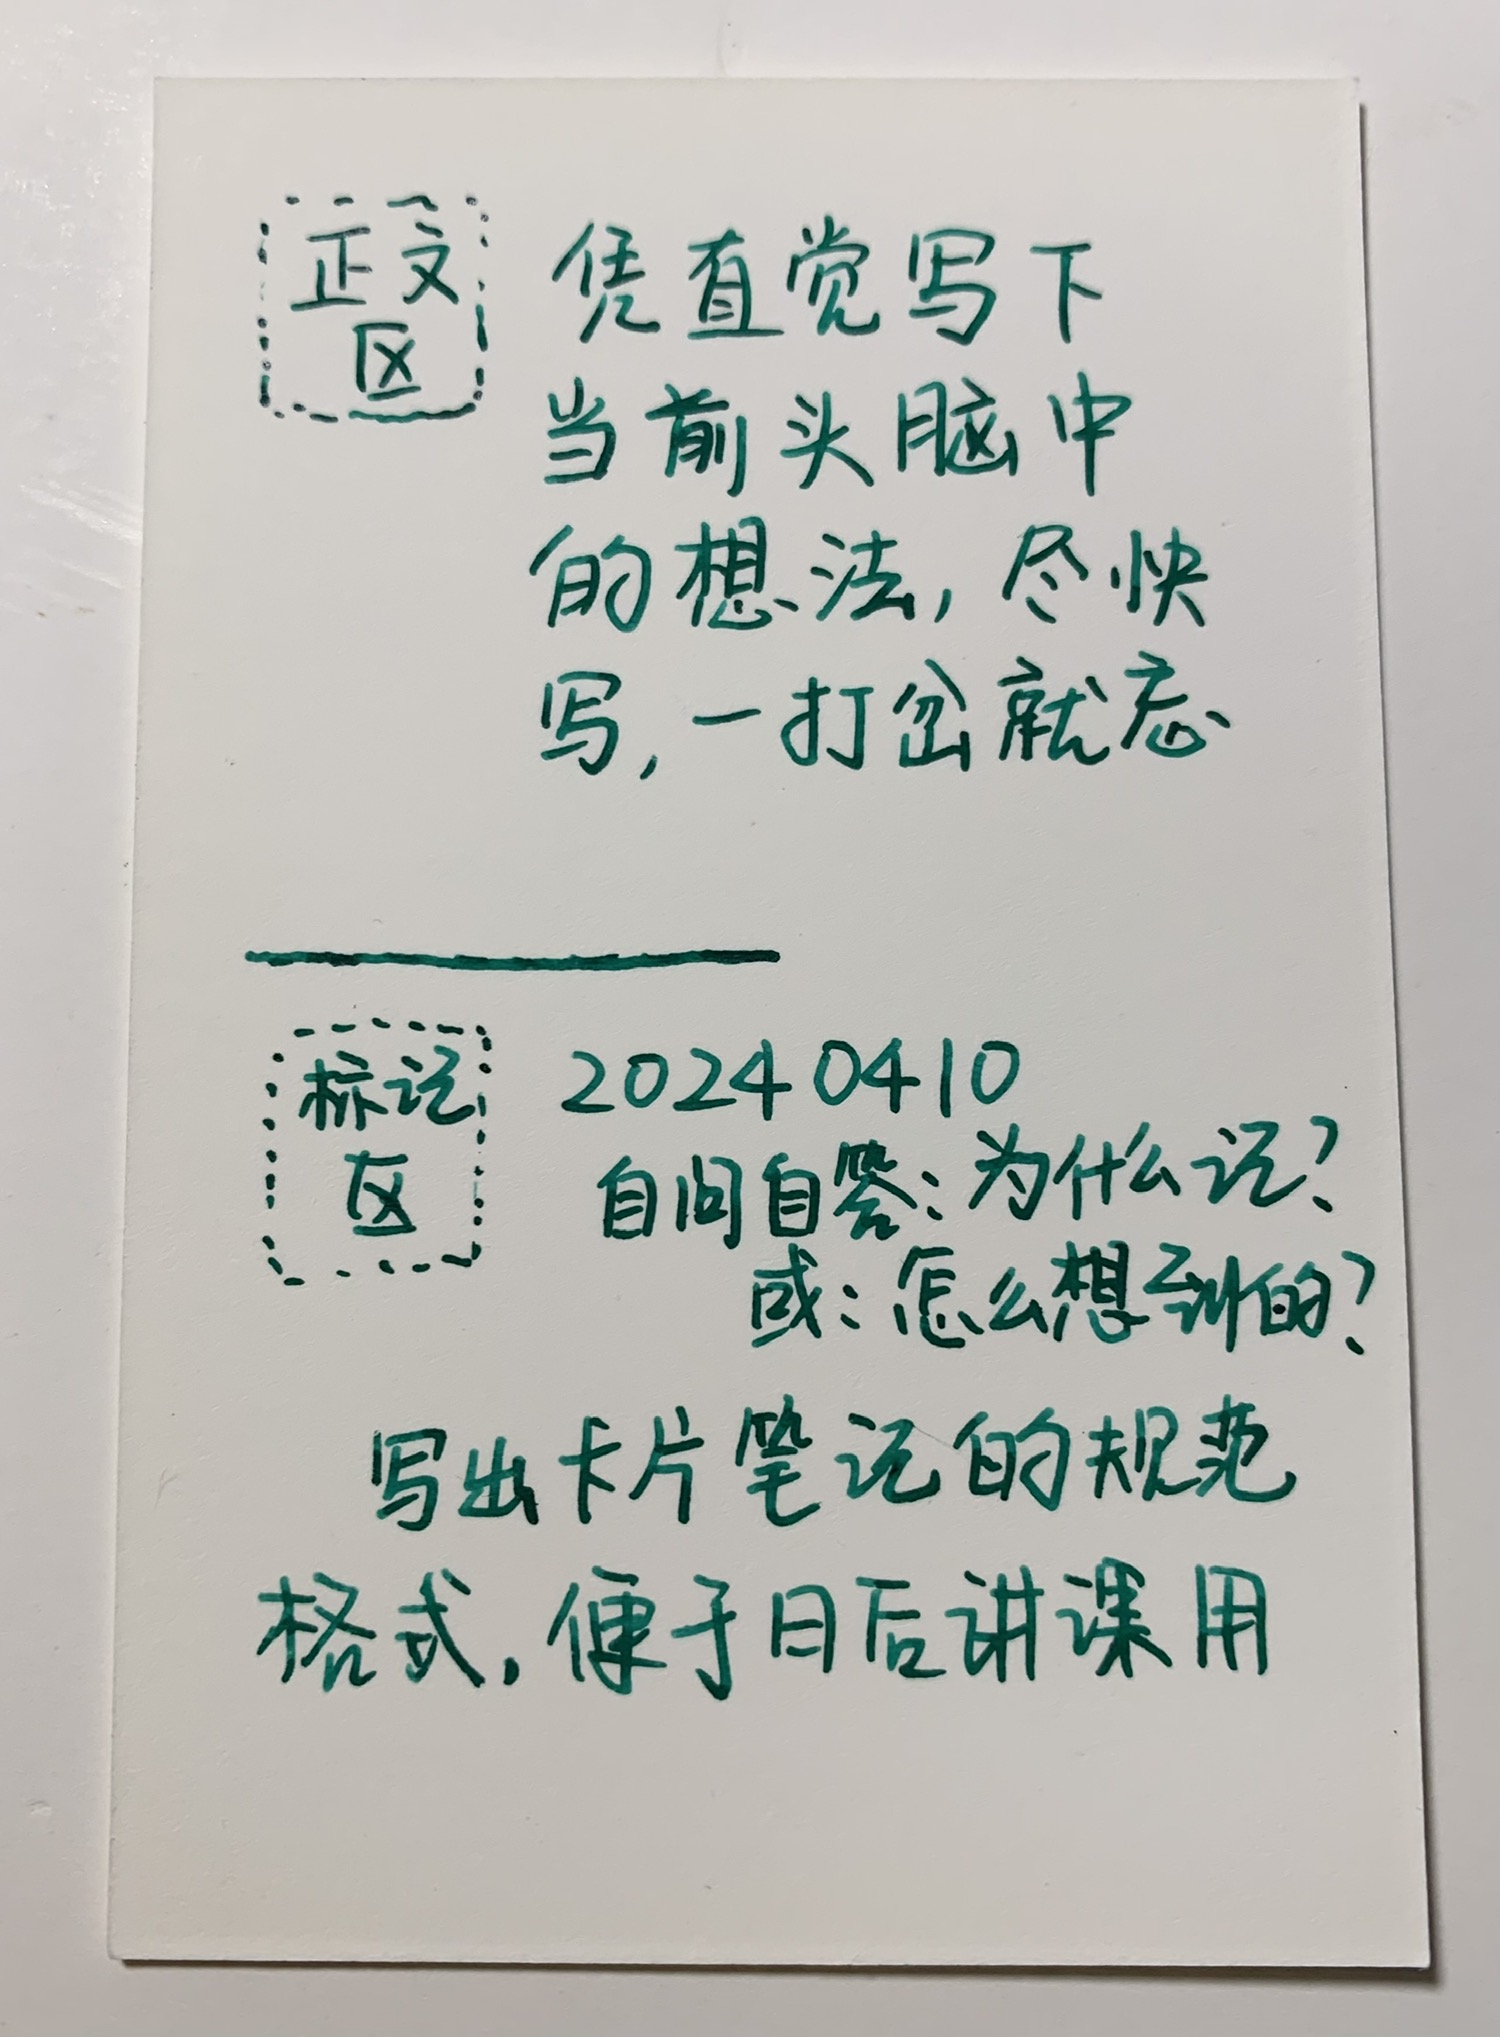 正文
区
凭直觉写下
当前头脑中
的想法，尽快
写，一打岔就忘
标记
区
20240410
自问自答：为什么记？
或：怎么想到的？
写出卡片笔记的规范
格式，便于日后讲课用